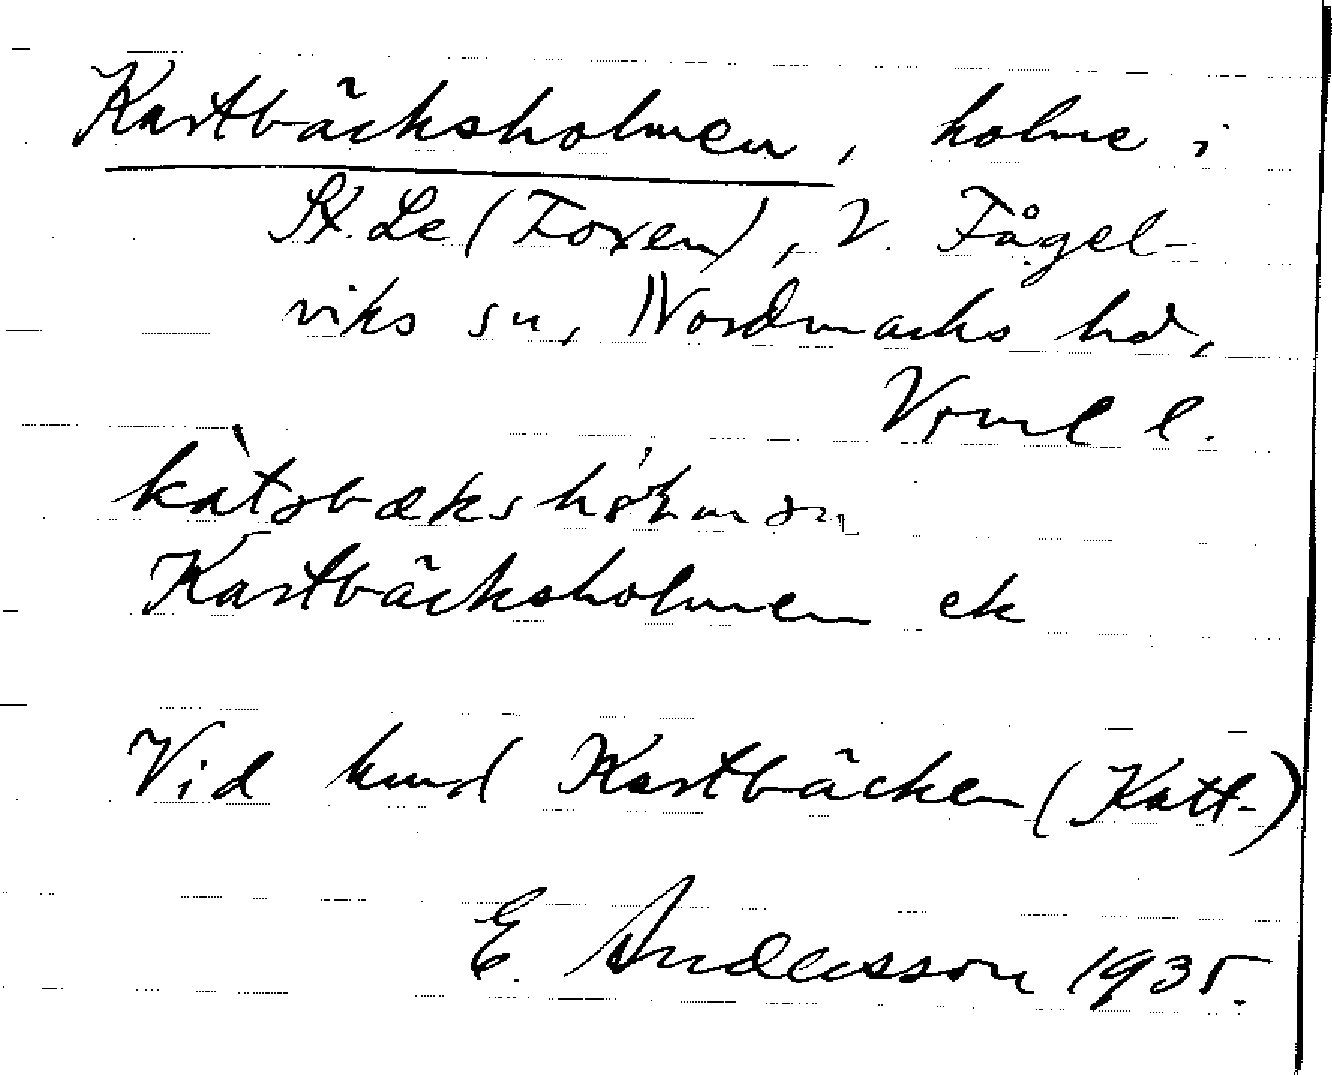 Kastbäcksholmen, holme i
St. Le (Foxen), V. Fågel-
viks sn, Nordmarks hd,
Vrml l.
Kastbäcksholmen ek
Vid hmd Kastbäcken (Katt-)
E. Andersson 1935.